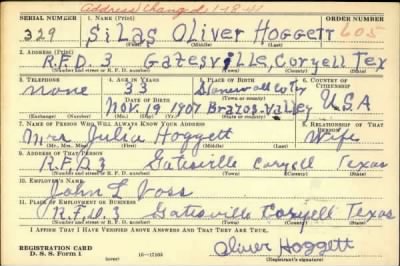 Address changed 1-18-41
SERIAL NUMBER 1. NAME (Print) ORDER NUMBER
329 SILAS OLIVER HOGGETT 605
(First) (Middle) (Last)
2. ADDRESS (Print)
R.F.D. 3 Gatesville, Coryell Tex
(Number and street or R. F. D. number) (Town) (County) (State)
3. TELEPHONE 4. AGE IN YEARS 5. PLACE OF BIRTH 6. COUNTRY OF CITIZENSHIP
none 33
DATE OF BIRTH (Town or county)
Nov. 19 1907 Brazos-Valley U.S.A
(Exchange) (No.) (Mo.) (Day) (Yr.) (State or country)
7. NAME OF PERSON WHO WILL ALWAYS KNOW YOUR ADDRESS 8. RELATIONSHIP OF THAT PERSON
Mrs Julia Hoggett Wife
(Mr., Mrs., Miss) (First) (Middle) (Last)
9. ADDRESS OF THAT PERSON
R.F.D.3 Gatesville Coryell Texas
(Number and street or R. F. D. number) (Town) (County) (State)
10. EMPLOYER'S NAME
John L Voss
11. PLACE OF EMPLOYMENT OR BUSINESS
R.F.D.3 Gatesville Coryell Texas
(Number and street or R. F. D. number) (Town) (County) (State)
I AFFIRM THAT I HAVE VERIFIED ABOVE ANSWERS AND THAT THEY ARE TRUE.
REGISTRATION CARD
D. S. S. Form 1 (over) 16—17105 Oliver Hoggett
(Registrant's signature)